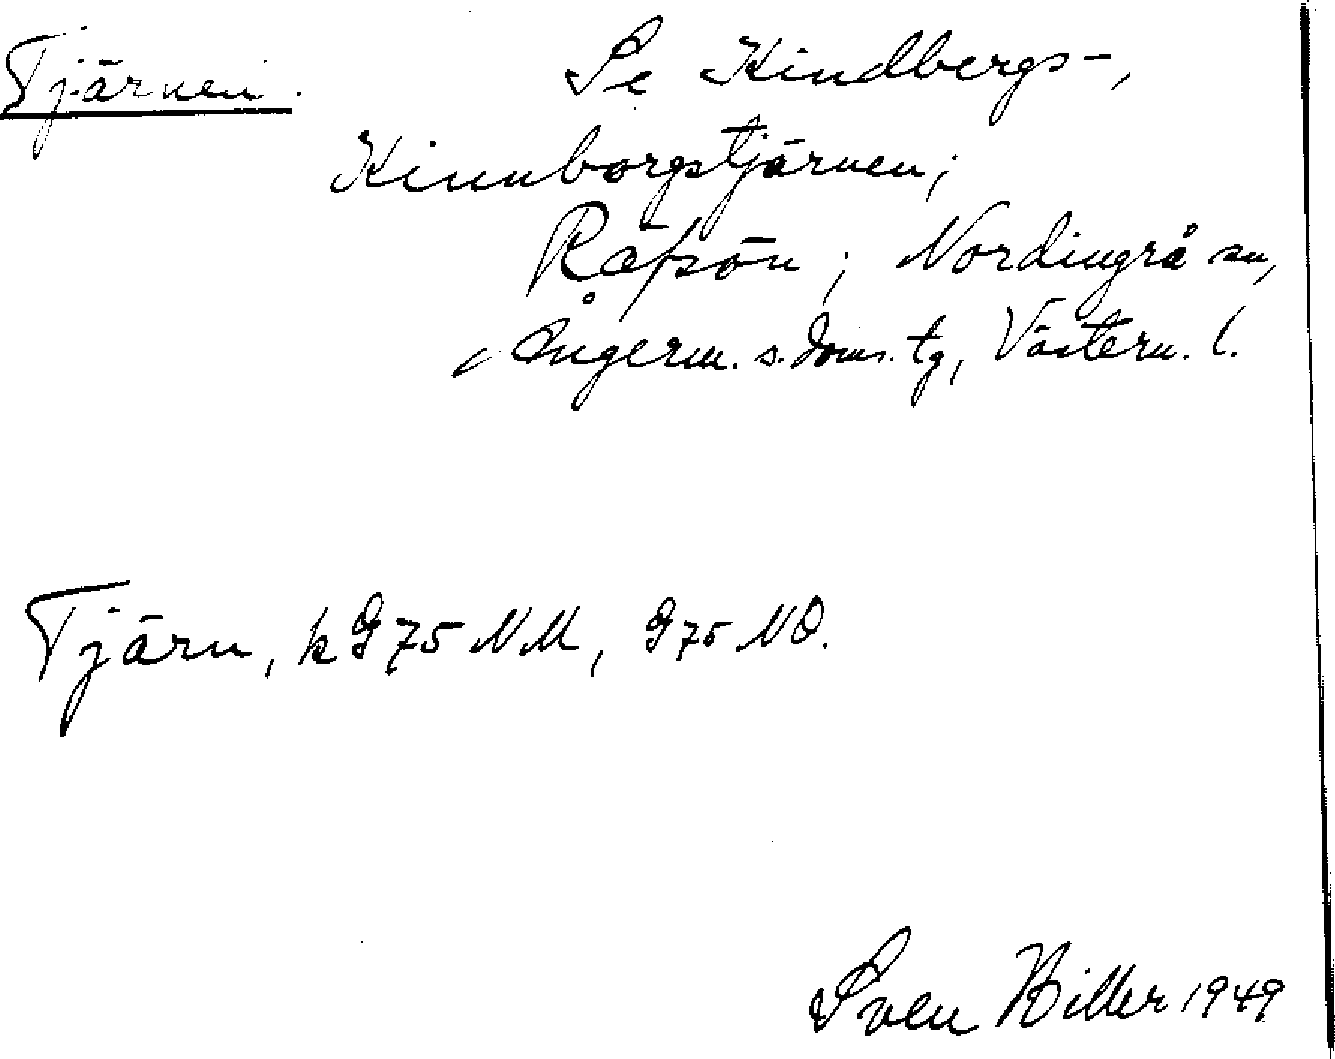 Tjärnen. Se Kindbergs-,
Kinnborgstjärnen;
Räfsön; Nordingrå sn,
Ångerm. s. doms. tg, Västern. l.
Tjärn, k G 75 NM, G 75 NO.
Sven Hiller 1949